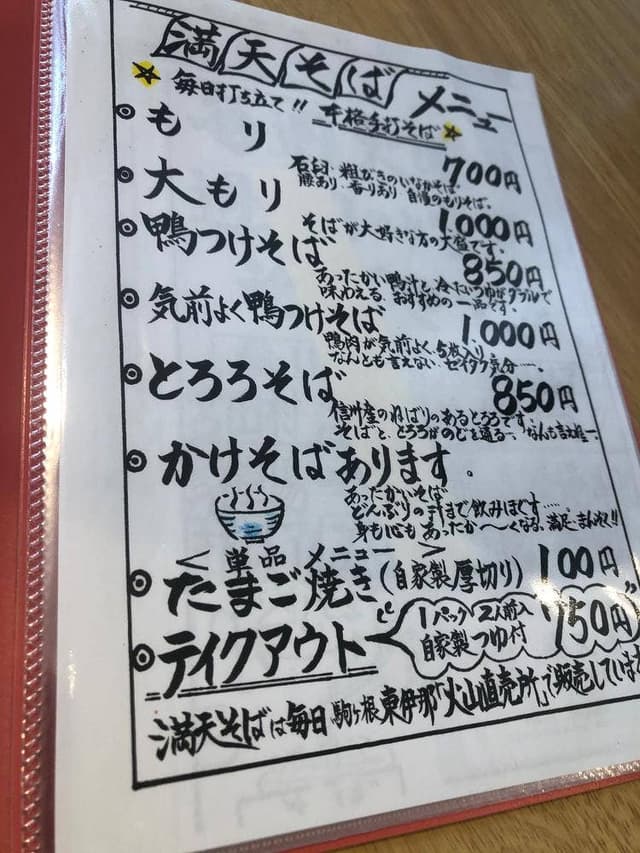 満天そば メニュー
毎日打ち立て!! 本格手打そば
もり 700円
石臼・粗びきのいなかそば。
腰あり、香りあり、自慢のもりそば。
大もり 1,000円
そばが大好きな方の大盛です。
鴨つけそば 850円
あったかい鴨汁と、冷たいつゆがダブルで
味わえる、おすすめの一品です。
気前よく鴨つけそば 1,000円
鴨肉が気前よく、5枚入り
なんとも言えない、ゼイタク気分……。
とろろそば 850円
信州産のねばりのあるとろろです。
そばと、とろろがのどを通る〜、なんも言えねー。
かけそばあります。
あったかいそば
どんぶりの汁まで飲みほす……
身も心もあったか〜〜くなる、満足、まんぞく!!
<単品メニュー>
たまご焼き(自家製厚切り) 100円
テイクアウト 1パック2人前入 750円
自家製つゆ付
満天そばは毎日駒ヶ根東伊那「火山直売所」で販売しています